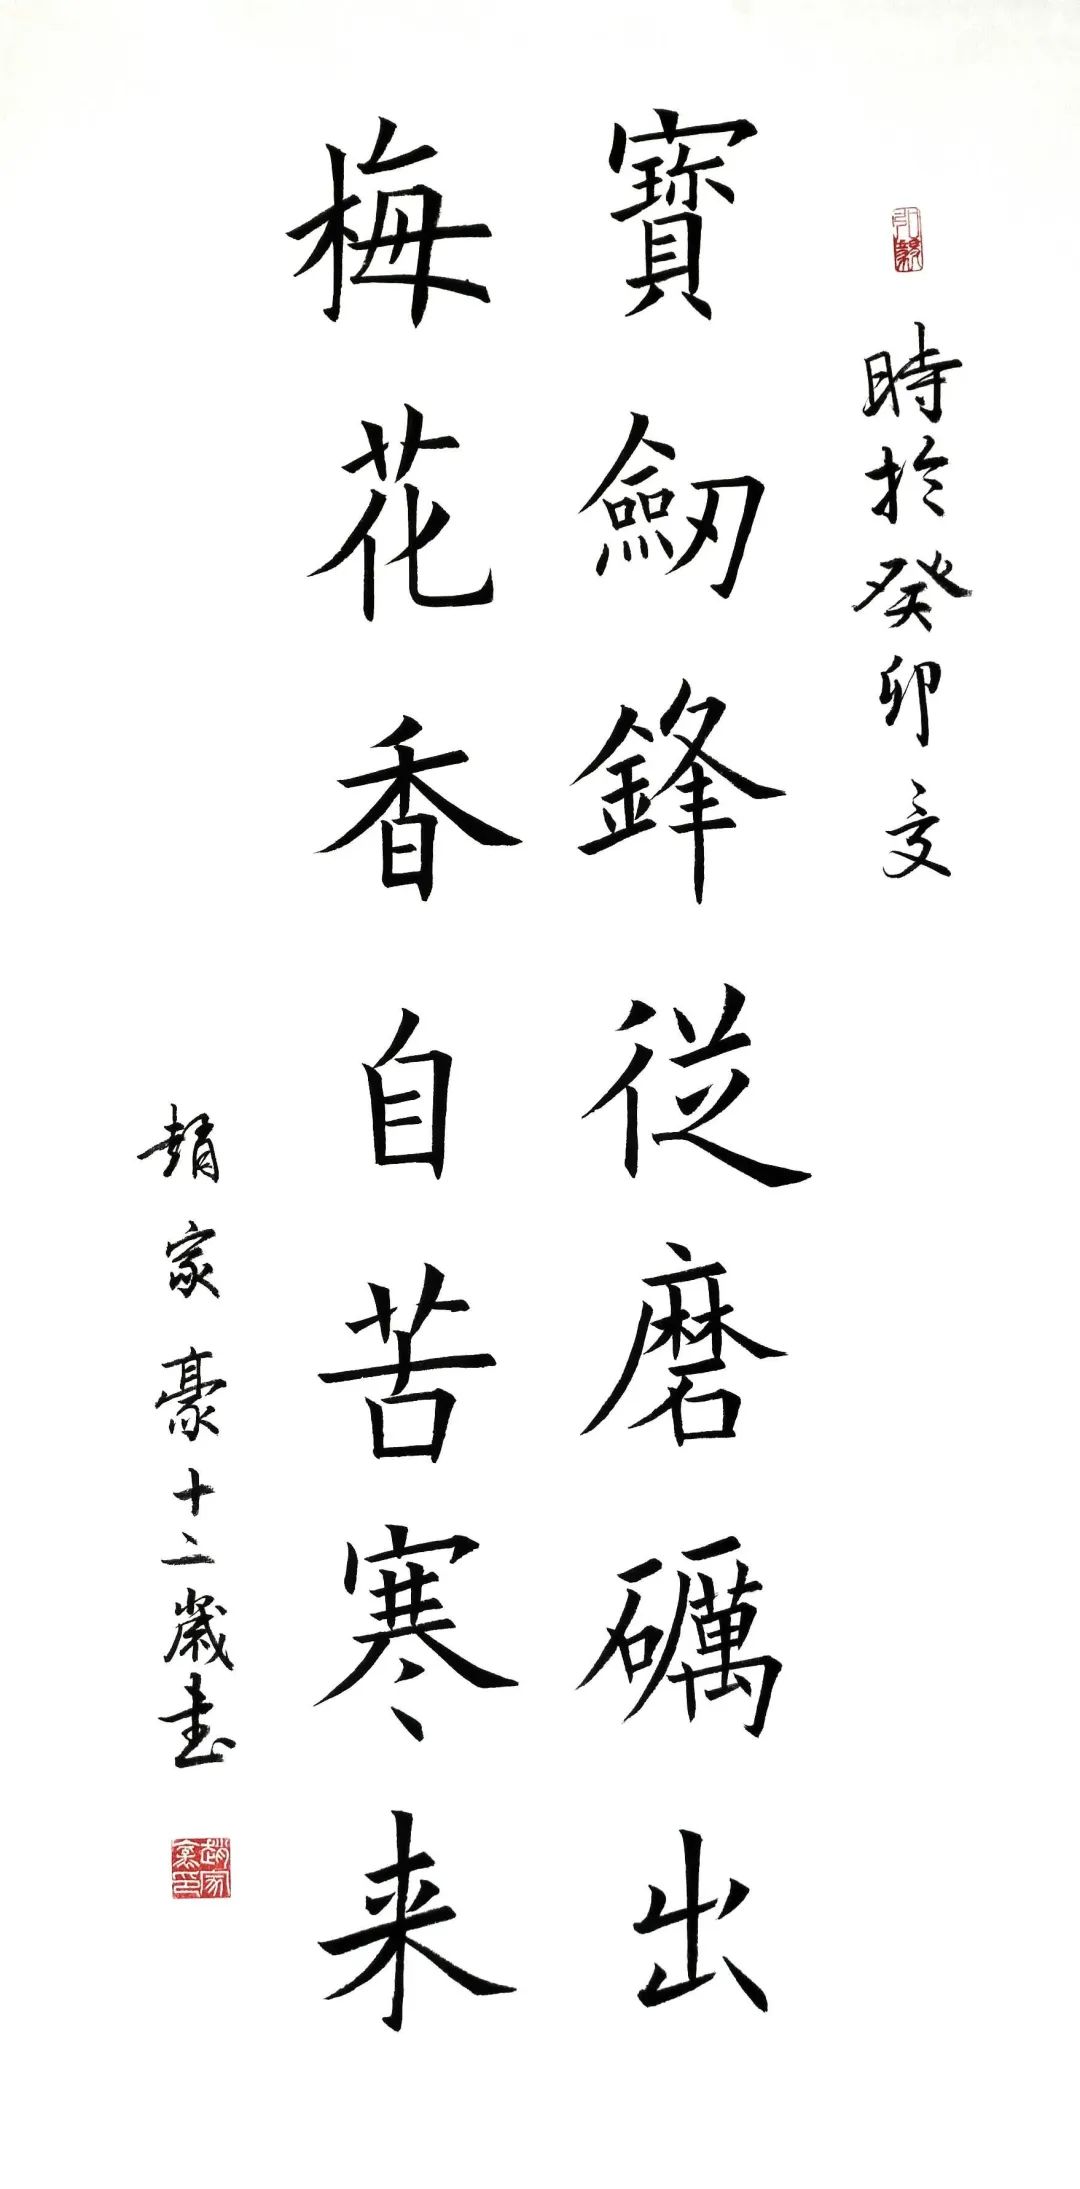 時於癸卯夏
寶劒鋒從磨礪出
梅花香自苦寒来
趙家豪十二歲書
趙家豪印